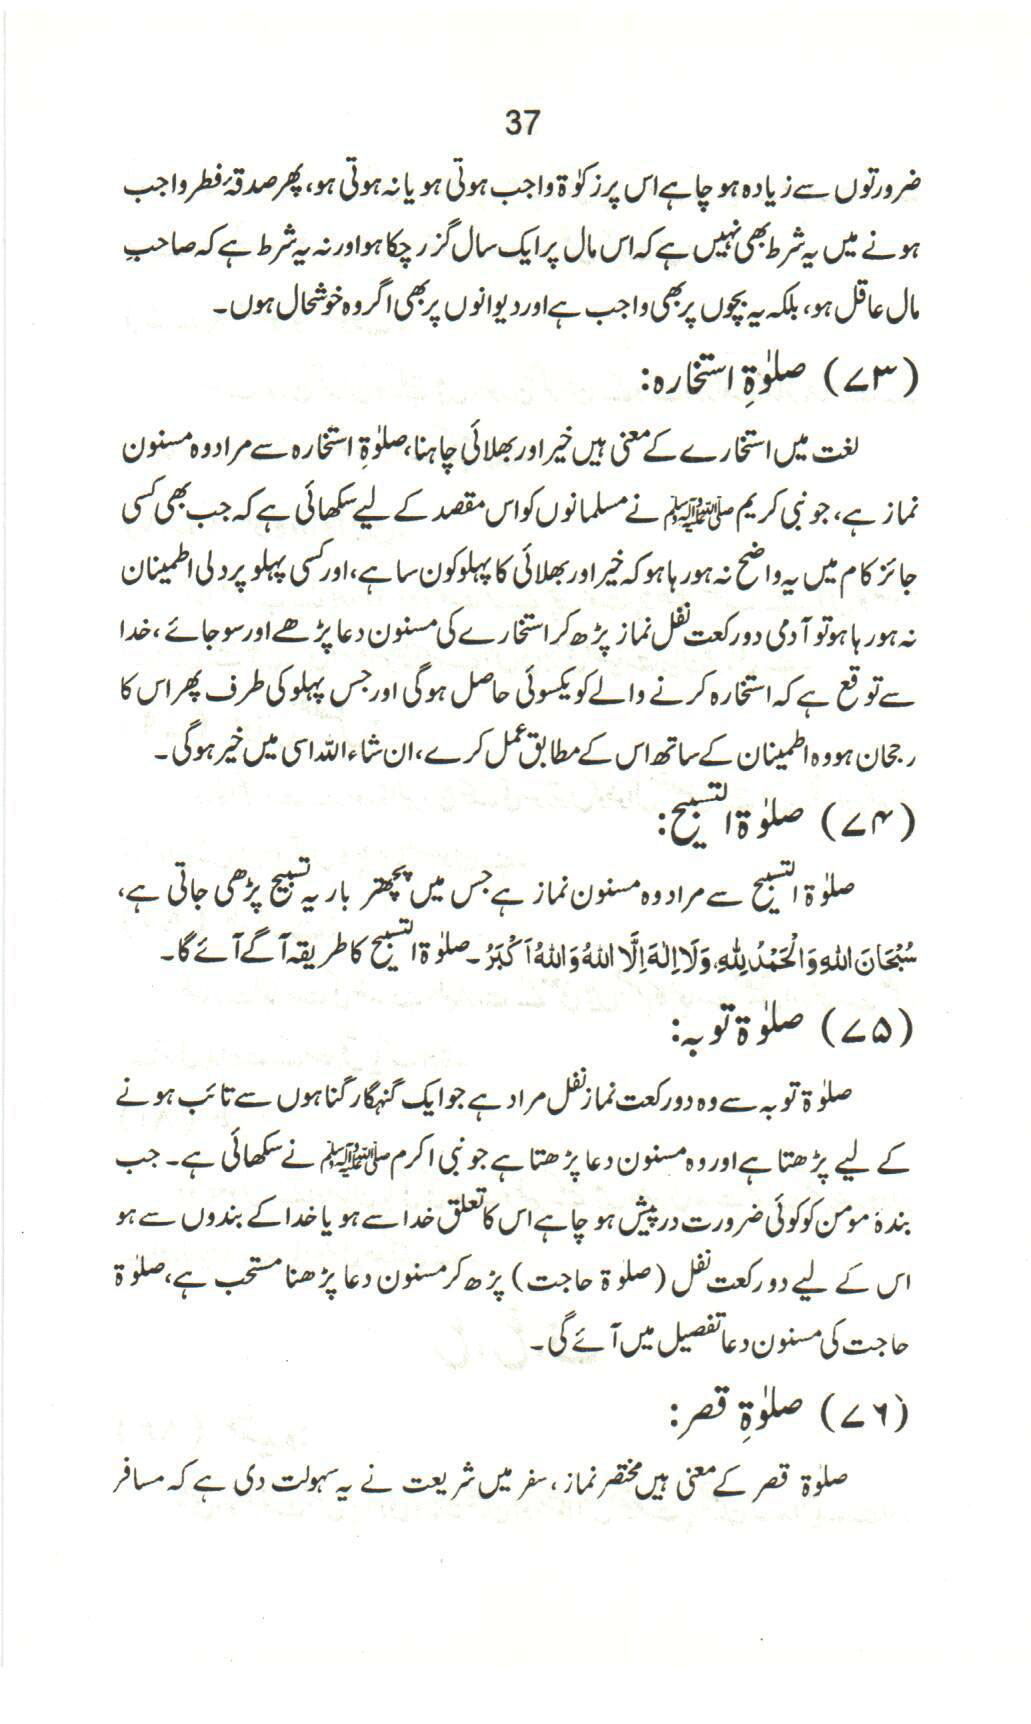 37
ضرورتوں سے زیادہ ہو چاہے اس پر زکوٰۃ واجب ہوتی ہو یا نہ ہوتی ہو، پھر صدقۂ فطر واجب
ہونے میں یہ شرط بھی نہیں ہے کہ اس مال پر ایک سال گزر چکا ہو اور نہ یہ شرط ہے کہ صاحبِ
مال عاقل ہو، بلکہ یہ بچوں پر بھی واجب ہے اور دیوانوں پر بھی اگر وہ خوشحال ہوں۔
(۷۳) صلوٰۃِ استخارہ:
لغت میں استخارے کے معنی ہیں خیر اور بھلائی چاہنا، صلوٰۃِ استخارہ سے مراد وہ مسنون
نماز ہے، جو نبی کریم ﷺ نے مسلمانوں کو اس مقصد کے لیے سکھائی ہے کہ جب بھی کسی
جائز کام میں یہ واضح نہ ہو رہا ہو کہ خیر اور بھلائی کا پہلو کون سا ہے، اور کسی پہلو پر دلی اطمینان
نہ ہو رہا ہو تو آدمی دو رکعت نفل نماز پڑھ کر استخارے کی مسنون دعا پڑھے اور سو جائے، خدا
سے توقع ہے کہ استخارہ کرنے والے کو یکسوئی حاصل ہوگی اور جس پہلو کی طرف پھر اس کا
رجحان ہو وہ اطمینان کے ساتھ اس کے مطابق عمل کرے، ان شاء اللہ اسی میں خیر ہوگی۔
(۷۴) صلوٰۃ التسبیح:
صلوٰۃ التسبیح سے مراد وہ مسنون نماز ہے جس میں پچھتر بار یہ تسبیح پڑھی جاتی ہے،
سُبْحَانَ اللهِ وَالْحَمْدُ لِلّٰهِ، وَلَا اِلٰهَ اِلَّا اللهُ وَاللهُ اَكْبَرُ۔ صلوٰۃ التسبیح کا طریقہ آگے آئے گا۔
(۷۵) صلوٰۃ توبہ:
صلوٰۃ توبہ سے وہ دو رکعت نماز نفل مراد ہے جو ایک گنہگار گناہوں سے تائب ہونے
کے لیے پڑھتا ہے اور وہ مسنون دعا پڑھتا ہے جو نبی اکرم ﷺ نے سکھائی ہے۔ جب
بندۂ مومن کو کوئی ضرورت درپیش ہو چاہے اس کا تعلق خدا سے ہو یا خدا کے بندوں سے ہو
اس کے لیے دو رکعت نفل (صلوٰۃ حاجت) پڑھ کر مسنون دعا پڑھنا مستحب ہے، صلوٰۃ
حاجت کی مسنون دعا تفصیل میں آئے گی۔
(۷۶) صلوٰۃِ قصر:
صلوٰۃ قصر کے معنی ہیں مختصر نماز، سفر میں شریعت نے یہ سہولت دی ہے کہ مسافر